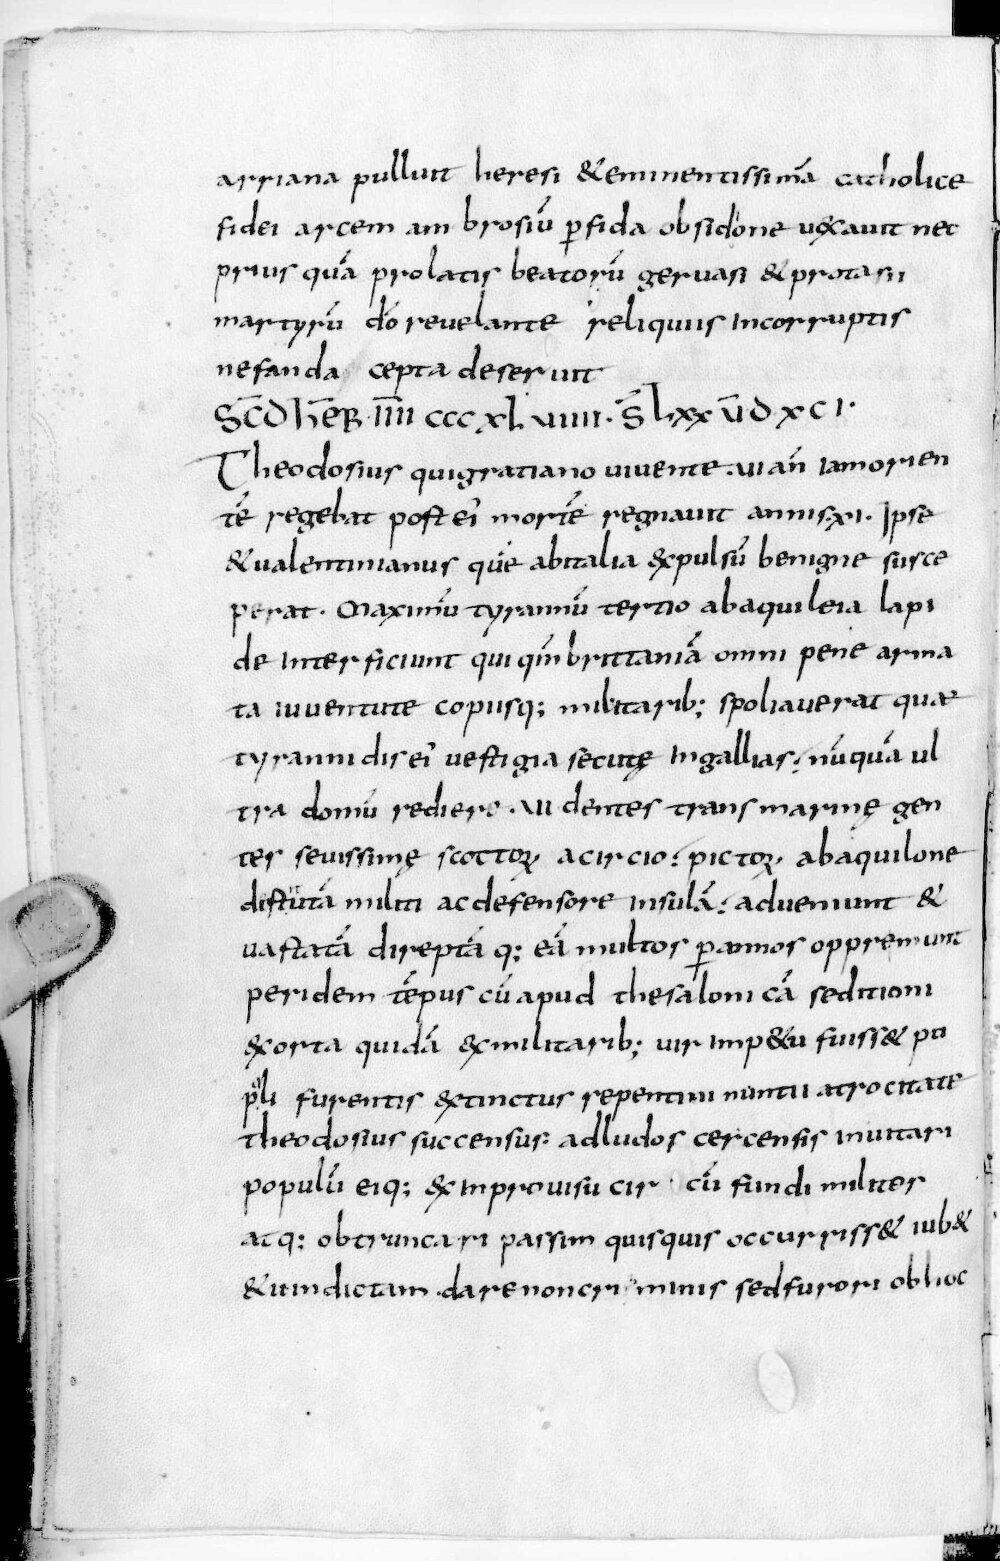 arriana pulluit heresi & eminentissimā catholice
fidei arcem ambrosiū ꝑfida obsidione uexauit nec
prius quā prolatis beatorū geruasi & protasii
martyrū dō reuelante reliquiis incorruptis
nefanda cepta deseruit
Sc̄d heƀR̄ IIII cccxlviiii. S̄ Lxx v̄d xci.
Theodosius qui gratiano uiuente .vi an̄ iam orien
tē regebat post eī mortē regnauit annis .xi. Ipse
& ualentinianus quē ab italia expulsū benigne susce
perat. Maximū tyrannū tertio ab aquileia lapi
de interficiunt qui qm̄ brittaniā omni pene arma
ta iuuentute copiisq; militarib; spoliauerat quae
tyrannidis eī uestigia secutę in gallias. nūquā ul
tra domū rediere .uidentes transmarinę gen
tes seuissimę scottoꝝ a circio: pictoꝝ ab aquilone
distitutā militi ac defensore insulā: adueniunt &
uastatā direptā q; eā multos ꝑ annos oppremunt
per idem tēpus cū apud thesalonicā seditioni
exorta quidā ex militarib; uir imp&u fuiss& pu
pꝉi furentis extinctus repentini nuntii atrocitate
theodosius succensus: ad ludos cercensis inuitari
populū eiq; ex inprouisu circū fundi milites
atq; obtruncari passim quisquis occurriss& iub&
& uindictam dare non criminis sed furori